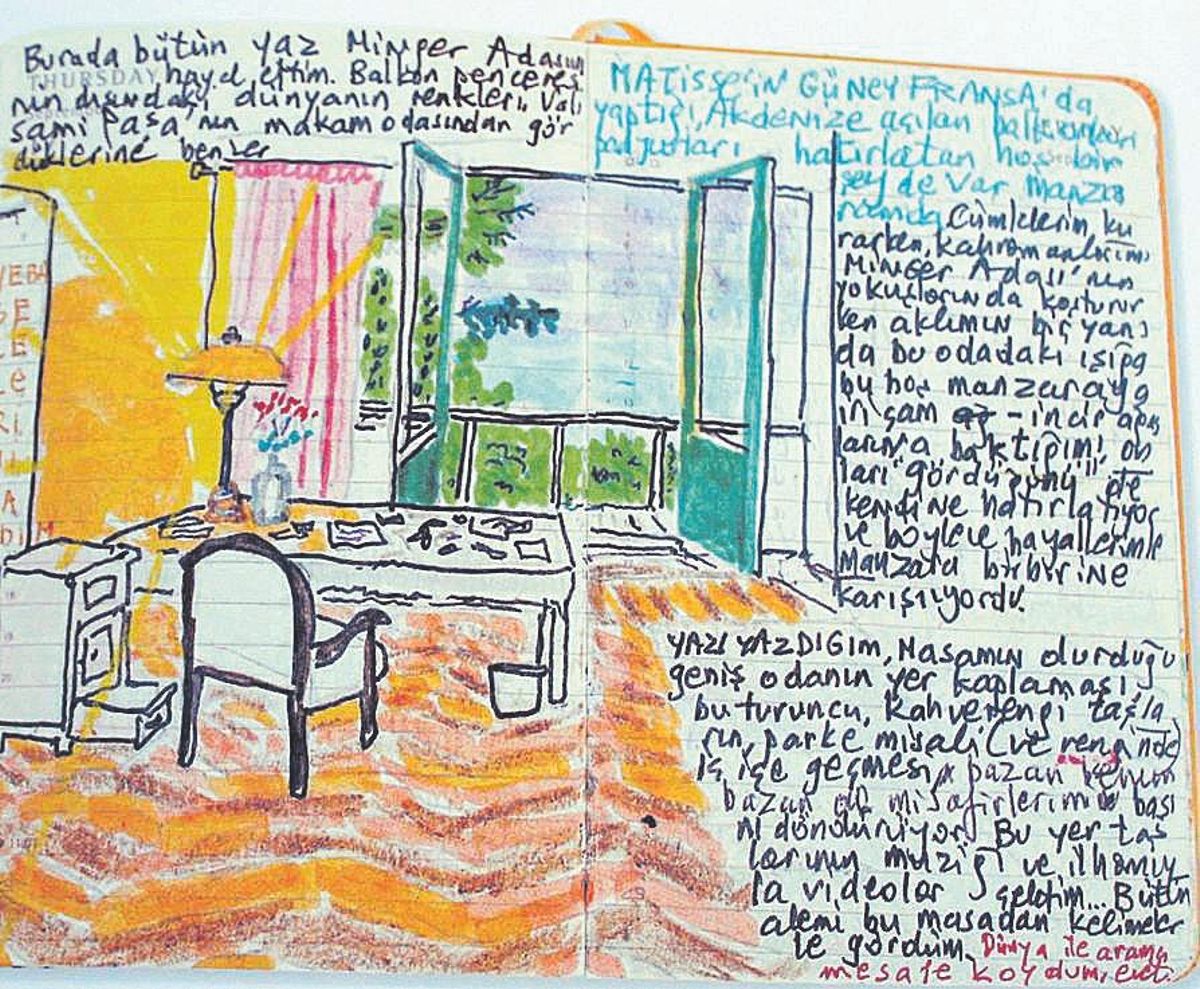 Burada bütün yaz Minger Adasını
THURSDAY
hayal ettim. Balkon penceresi
nın dışındaki dünyanın renkleri, Vali
Sami Paşa'nın makam odasından gör
düklerine benzer
VEBA
GE
CE
LE
Rİ
A
DIM
MATİSSE'in GÜNEY FRANSA'da
yaptığı, Akdenize açılan balkonları
panjurları hatırlatan hoş bir
şey de var manza
ramda. Cümlelerimi ku
rarken, kahramanlarım
Minger Adası'nın
yokuşlarında koşturur
ken aklımın bir yanı
da bu odadaki ışığa
bu hoş manzaraya
çam - incir ağaç
larına baktığımı, on
ları "gördüğünü"
kendine hatırlatıyor
ve böylece hayallerimle
manzara birbirine
karışıyordu.
YAZI YAZDIĞIM, Masamın durduğu
geniş odanın yer kaplaması,
bu turuncu, kahverengi taşla
rın, parke misali (ve renginde)
iç içe geçmesi, bazan benim
bazan da misafirlerimin başı
nı döndürüyor. Bu yer taş
larının müziği ve ilhamıy
la videolar çektim... Bütün
alemi bu masadan kelimeler
le gördüm. Dünya ile arama
mesafe koydum,